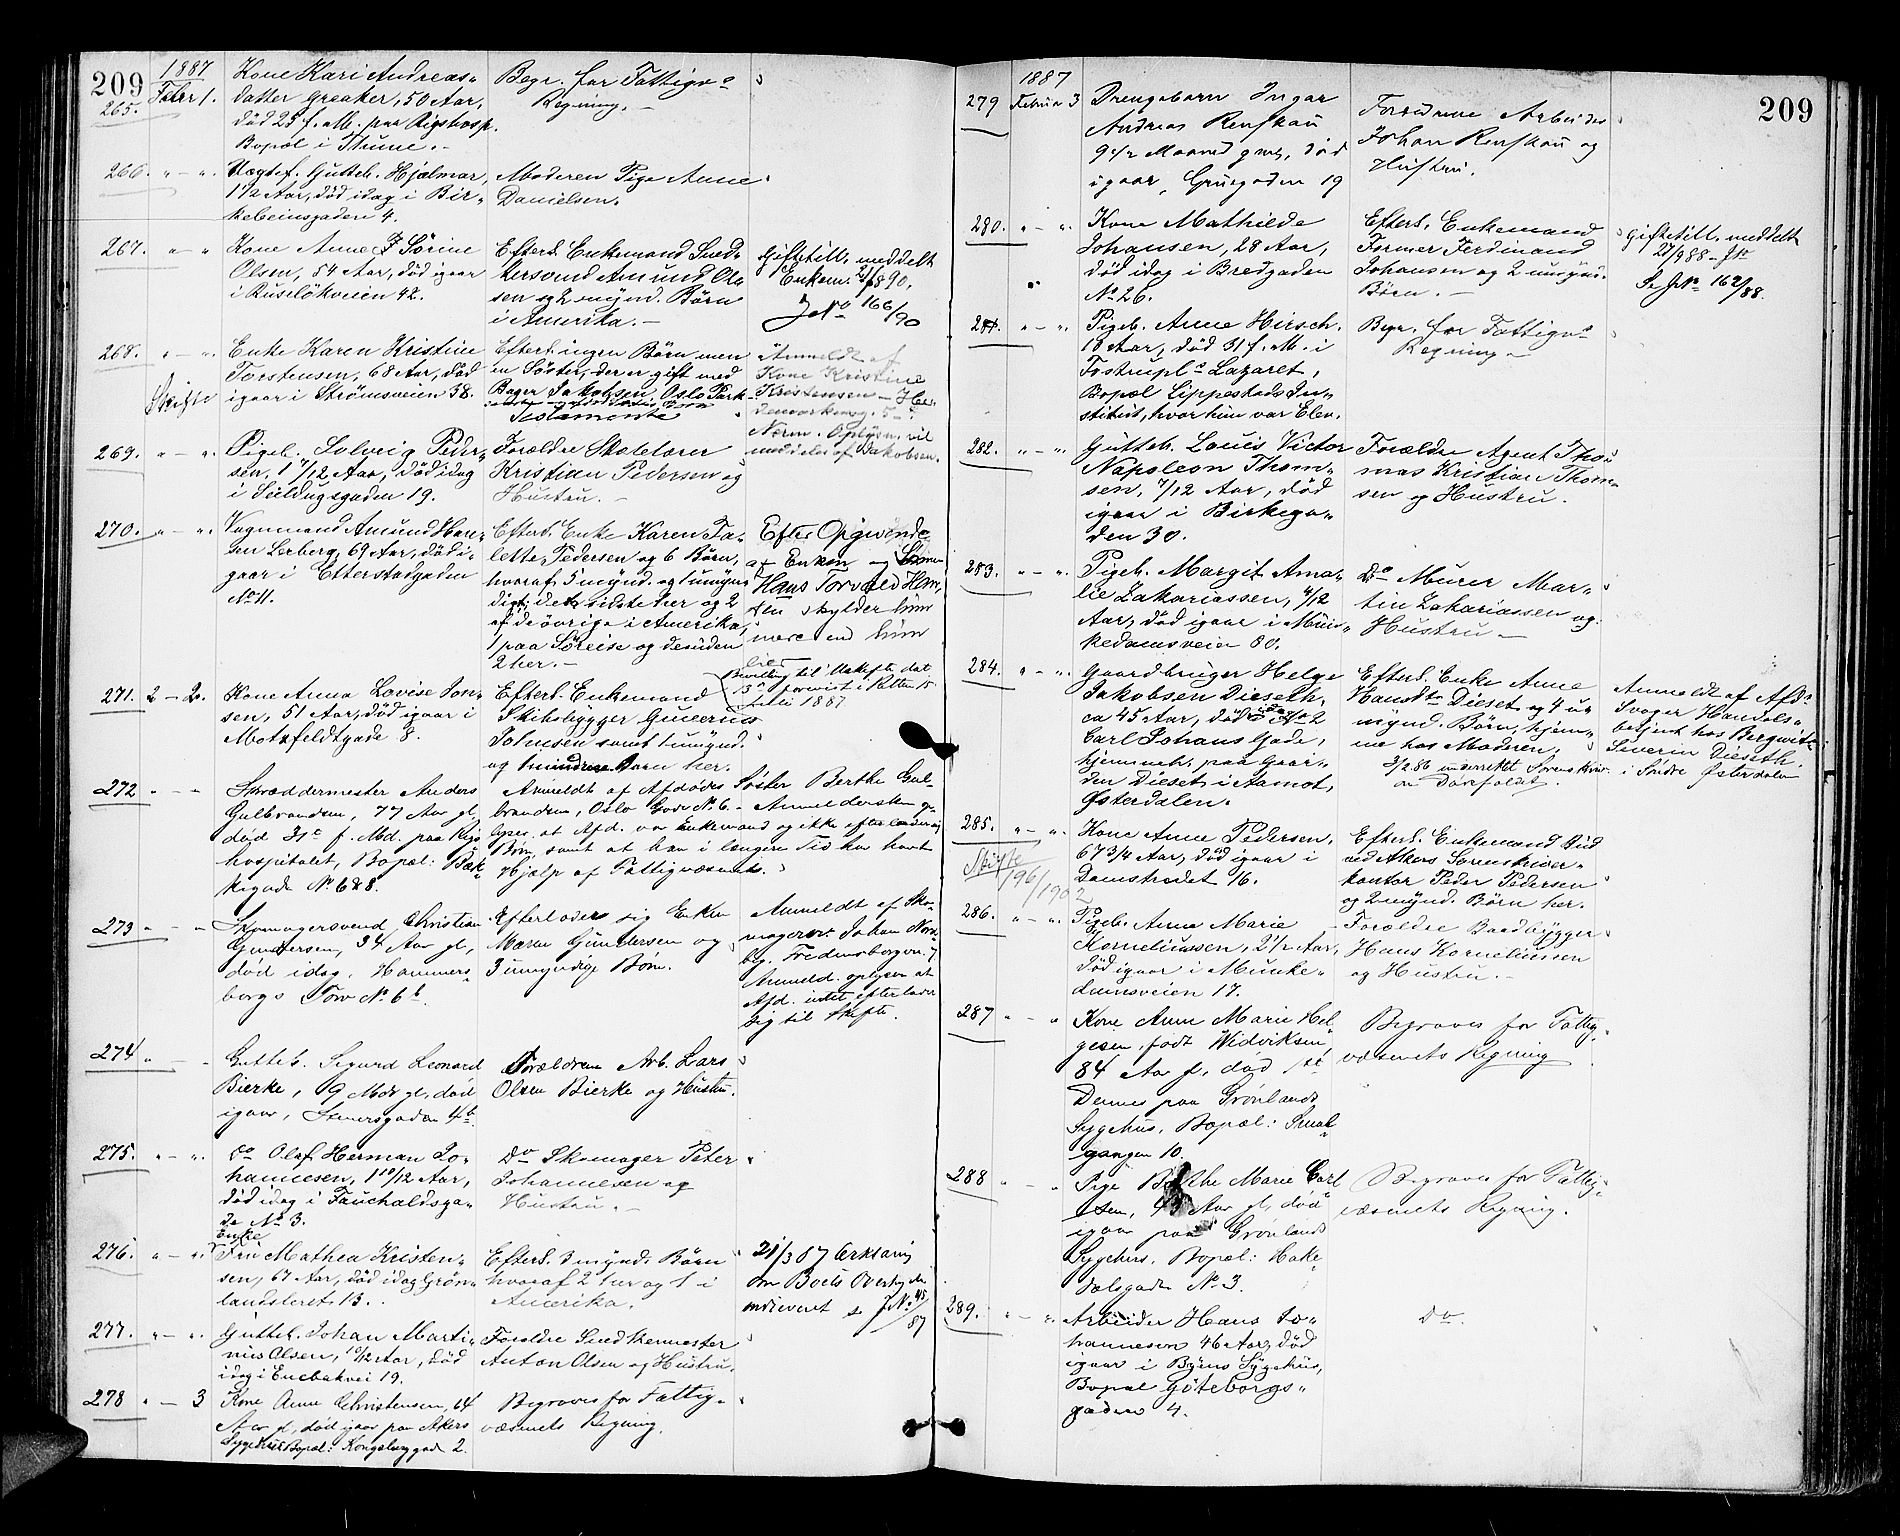 209
1887
265. Febr 1. Kone Kari Andreas-
datter Greaker, 50 Aar,
død 25 f. M. paa Rigshosp.
Bopæl i Thune.
Begr. for Fattigv.
Regning.
266. " - " Uægtef. Gutteb. Hjalmar,
1 1/2 Aar, død idag i Bir-
kebeinsgaden 4.
Moderen Pige Anne
Danielsen.
267. " - " Kone Anne Sørine
Olsen, 54 Aar, død igaar
i Ruseløkveien 42.
Efterl. Enkemand Sned-
kersvend Amund Ol-
sen og 2 mynd. Børn
i Amerika.
Giftetill. meddelt
Enkem.
JNo 166/90
268. " - " Enke Karen Kristine
Torstensen, 68 Aar, død
igaar i Strømsveien 38.
Skifte
Efterl. ingen Børn men
en Søster, der er gift med
Bager Jakobsen, Oslo
Testamente
Anmeldt af
Kone Kristine
Kristensen
Nærm. Oplysn. vil
meddeles af Jakobsen.
269. " - " Pigeb. Solveig Peder-
sen, 1 7/12 Aar, død idag
i Seildugsgaden 19.
Forældre
Kristian Pedersen og
Hustru.
270. " - " Vognmand Amund Han-
sen Lerberg, 69 Aar, død i-
gaar i Etterstadgaden
No 11.
Efterl. Enke Karen Ta-
lette Pedersen og 6 Børn,
hvoraf 5 mynd. og 1 umyn-
dig; det sidste her og 2
af de øvrige i Amerika,
1 paa Søreise og desuden
2 her.
Efter Opgivende
af Enken og Sønnen
Hans Torvald
skylder him
mere end him
eier
Bevilling til Uskifte dat.
13 forevist i Retten 15
Juli 1887
271. 2 - 2. Kone Anna Lovise Jon-
sen, 51 Aar, død igaar i
Motzfeldtgade 8.
Efterl. Enkemand
Skibsbygger Gunerius
Johnsen samt 1 umynd.
og 1 mindre Børn her.
272 " - " Skræddermester Anders
Gulbrandsen, 77 Aar gl,
død 31te f. Md. paa Rigs-
hospitalet, Bopæl: Bæk-
kegade No 6&8.
Anmeldt af Afdødes Søster Berthe Gul-
brandsen, Oslo Gade No. 6. - Anmeldersken op-
lyser, at Afd. var Enkemand og ikke efterlader sig
Børn, samt at han i længere Tid har havt
Hjælp af Fattigvæsenet.
273 " - " Skomagersvend Christian
Gundersen, 34 Aar gl,
død idag, Hammers-
borgs Torv No. 6b.
Efterlader sig Enken
Maren Gundersen og
3 umyndige Børn.
Anmeldt af Sko-
magersv. Johan Nord-
by, Fredensborgvn. 7
Anmeld. oplyser at
Afd. intet efterlader
sig til Skifte.
274 " - " Gutteb. Sigurd Leonard
Bierke, 9 Mdr gl, død
igaar, Steenersgaden 4b.
Forældrene Arb. Lars
Olsen Bierke og Hustru.
275. " - " Do Olaf Herman Jo-
hannesen, 1 10/12 Aar,
død idag i Fauchaldsga-
de No 3.
Do Skomager Peter
Johannesen og
Hustru.
276. " - " Enke
Fru Mathea Kristen-
sen, 67 Aar, død idag Grøn-
landsleret 13.
Efterl. 3 mynd. Børn
hvoraf 2 her og 1 i
Amerika.
21/3 87 Erklæring
om Boets Overtagelse
indleveret se JNo 45/87
277. " - " Gutteb. Johan Marti-
nius Olsen, 10/12 Aar, død
idag i Enebakvei 19.
Forældre Snedkermester
Anton Olsen og Hustru.
278 " - 3 Kone Anne Christensen, 64
Aar gl, død igaar paa Akers
Sygehus Bopæl: Kongsberggade 2.
Begraves for Fattig-
væsenets Regning.
209
1887
279 Februar 3 Drengebarn Ingar
Andreas Renskau
9 1/2 Maaned gml, død
igaar, Gruegaden 19
Forældrene Arbeider
Johan Renskau og
Hustru.
280. " - " Kone Mathilde
Johansen, 28 Aar,
død idag i Bredgaden
No 26.
Efterl. Enkemand
Former Ferdinand
Johansen og 2 umynd.
Børn.
Giftetill. meddelt
27/9 88
Se JNo 162/88.
281. " - " Pigeb. Anne Hirsch.
18 Aar, død 31 f. M. i
Fostrups Lazaret,
Bopæl Lippestads In-
stitut, hvor hun var Elev.
Begr. for Fattigv.
Regning.
282. " - " Gutteb. Louis Victor
Napoleon Thom-
sen, 7/12 Aar, død
igaar i Birkega-
den 30.
Forældre Agent Tho-
mas Kristian Thom-
sen og Hustru.
283. " - " Pigeb. Margit Ama-
lie Zakariassen, 4/12
Aar, død igaar i Mun-
kedamsveien 80.
Do Murer Mar-
tin Zakariassen og
Hustru.
284. " - " Gaardbruger Helge
Jakobsen Dieseth,
ca 45 Aar, død idag i No 2
Carl Johans Gade,
hjemmeh. paa Gaar-
den Dieset i Aamot,
Østerdalen.
Efterl. Enke Anne
Dieset og 4 u-
mynd. Børn, hjem-
me hos Moderen.
underrettet Sorenskriv-
er
Anmeldt af Afd.s
Svoger Handels-
betjent hos Bergwitz
Severin Dieseth.
i Søndre Østerdalen
285. " - " Kone Anne Pedersen,
67 3/4 Aar, død igaar i
Damstredet 16.
Skifte
196/1902
Efterl. Enkemand Bud
ved Akers Sorenskriver-
kontor Peder Pedersen
og 2 mynd. Børn her.
286. " - " Pigeb. Anna Marie
Korneliussen, 2 1/2 Aar,
død igaar i Munke-
damsveien 17.
Forældre Baadbygger
Hans Korneliussen
og Hustru.
287 " - " Kone Anne Marie Hel-
gesen, født Widviksen
84 Aar gl, død 1ste
Dennes paa Grønlands
Sygehus, Bopæl: Smal-
gangen 10.
Begraves for Fattig-
væsenets Regning
288 " - " Pige Berthe Marie Carl-
sen, 43 Aar gl, død
igaar paa Grønlands
Sygehus, Bopæl: Hake-
dalsgade No. 3.
Begraves for Fattig-
væsenets Regning.
289. " - " Arbeider Hans Jo-
hannesen 46 Aar, død
igaar i Byens Sygehus,
Bopæl Göteborgs-
gaden 4.
Do.